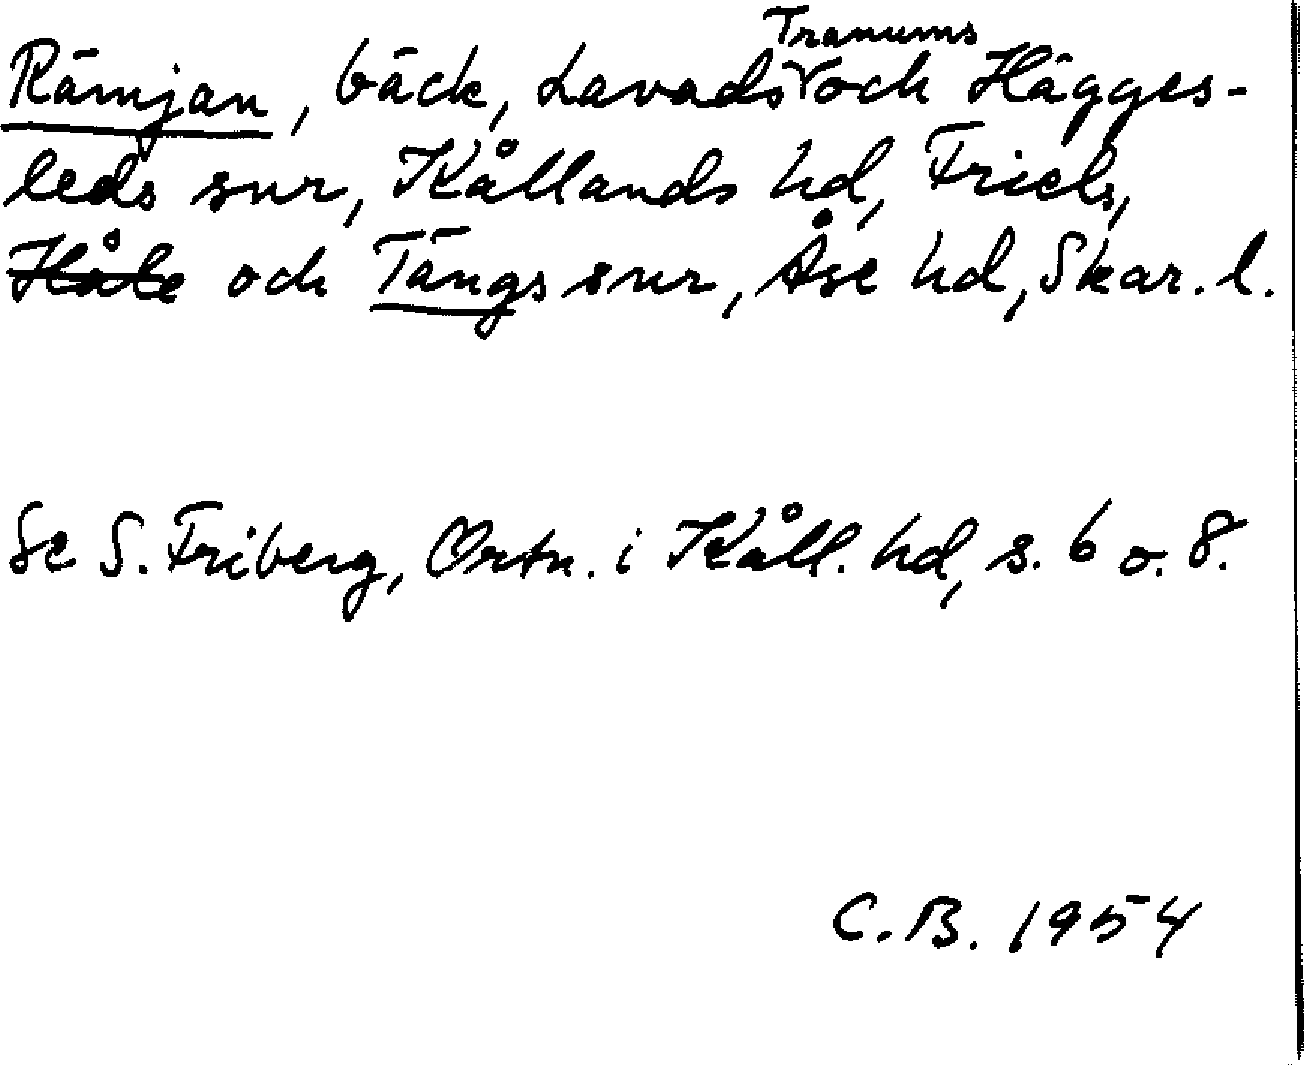 Tranums
Rämjan, bäck, Lavads och Hägges-
leds snr, Kållands hd, Friels,
Håle och Tängs snr, Åse hd, Skar. l.
Se S. Friberg, Ortn. i Kåll. hd, s. 6 o. 8.
C.B. 1954